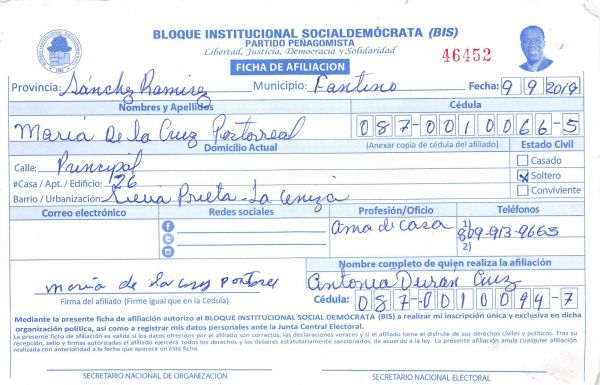 BLOQUE INSTITUCIONAL SOCIALDEMÓCRATA (BIS)
PARTIDO PEÑAGOMISTA
Libertad, Justicia, Democracia y Solidaridad
46452
FICHA DE AFILIACION
Provincia: Sánchez Ramirez Municipio: Fantino Fecha: 9 9 2019
Nombres y Apellidos Cédula
Maria De la Cruz Portorreal 087-0010066-5
Domicilio Actual (Anexar copia de cédula del afiliado) Estado Civil
Calle: Principal Casado
#Casa / Apt. / Edificio: 26 x Soltero
Barrio / Urbanización: Sierra Prieta - La ceniza Conviviente
Correo electrónico Redes sociales Profesión/Oficio Teléfonos
Ama de casa 1) 809-913-9663
2)
Nombre completo de quien realiza la afiliación
maria de la cruz portorreal Antonia Durán Cruz
Firma del afiliado (Firme igual que en la Cédula) Cédula: 087-0010094-7
Mediante la presente ficha de afiliación autorizo al BLOQUE INSTITUCIONAL SOCIAL DEMÓCRATA (BIS) a realizar mi inscripción única y exclusiva en dicha
organización política, así como a registrar mis datos personales ante la Junta Central Electoral.
La presente ficha de afiliación es válida si los datos ofrecidos por el afiliado son correctos, las declaraciones veraces y si el afiliado tiene el disfrute de sus derechos civiles y políticos. Tras su
recepción, sello y firmas autorizadas el afiliado ejercerá todos los derechos y los deberes estatutariamente sancionados, de acuerdo a la ley. La presente afiliación anula cualquier afiliación
realizada con anterioridad a la fecha que aparece en esta ficha.
SECRETARIO NACIONAL DE ORGANIZACIÓN SECRETARIO NACIONAL ELECTORAL